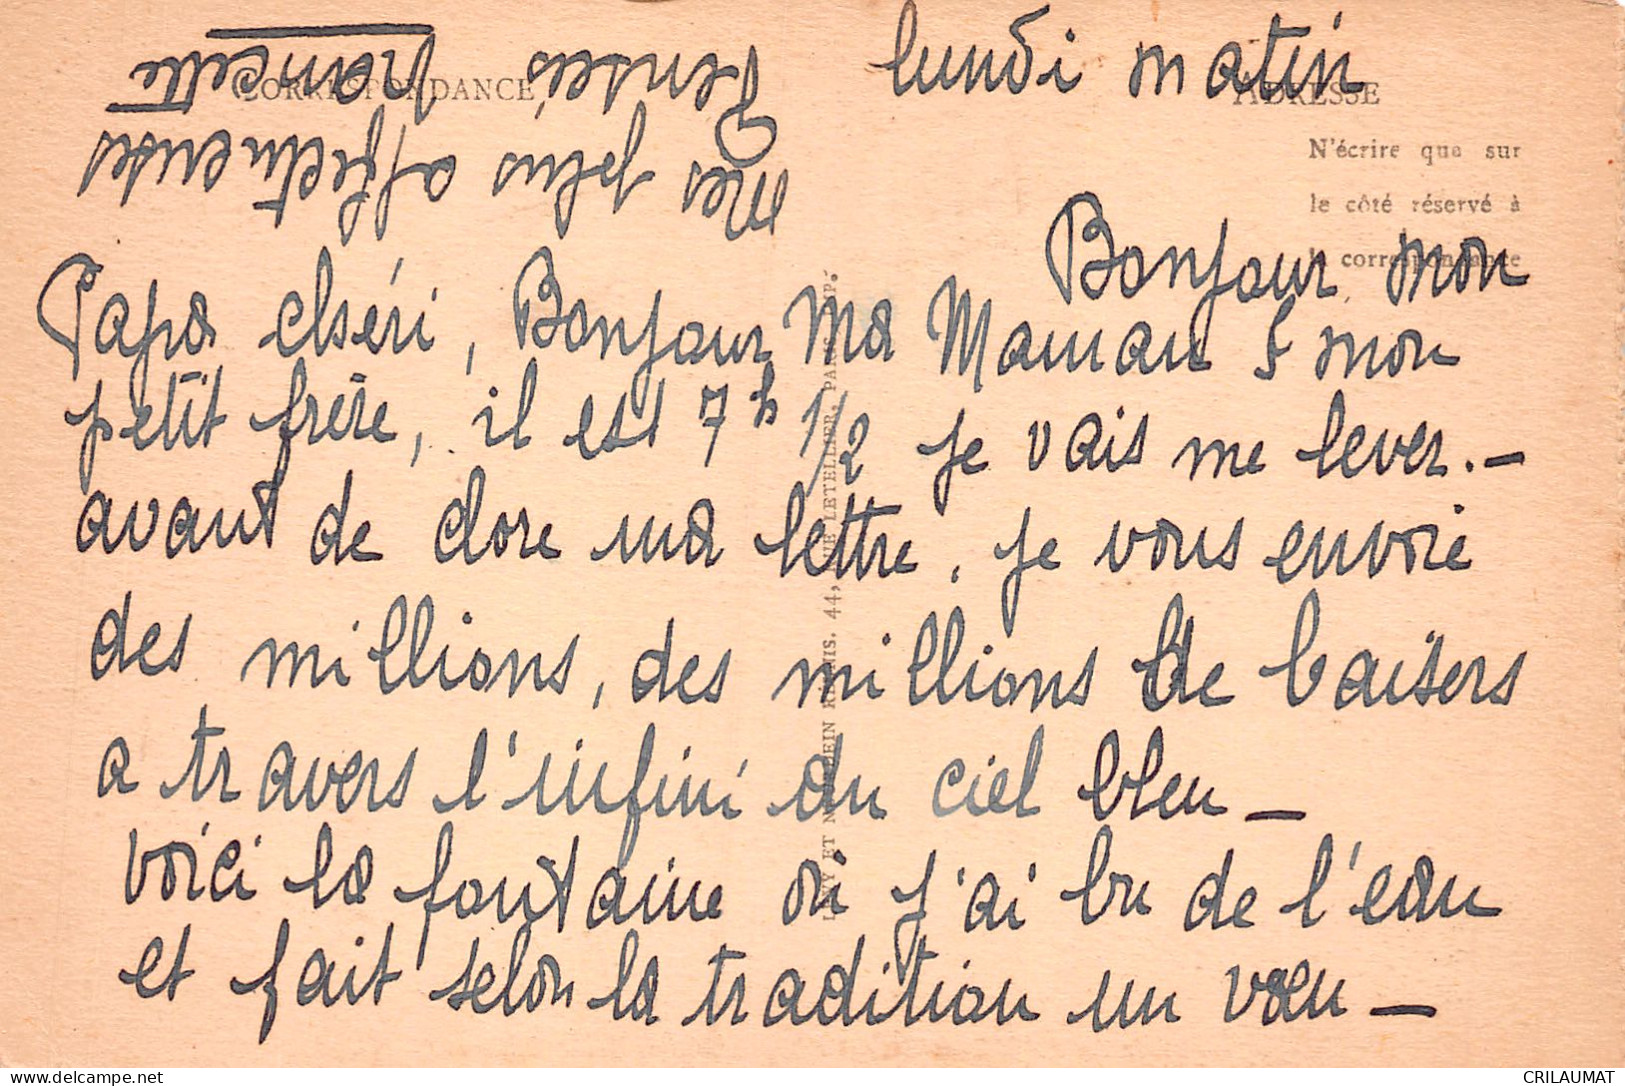 lundi matin
CORRESPONDANCE
ADRESSE
N'écrire que sur
le côté réservé à
la correspondance
Bonjour mon
Papa chéri, Bonjour Ma Maman & mon
petit frère, il est 7h 1/2 je vais me lever.—
avant de clore ma lettre, je vous envoie
des millions, des millions de baisers
a travers l'infini du ciel bleu—
voici la fontaine où j'ai bu de l'eau
et fait selon la tradition un vœu—
mes plus affectueuses
Pensées Francette
LEVY ET NEURDEIN REUNIS. 44, RUE LETELLIER, PARIS IMP.
CRILAUMAT